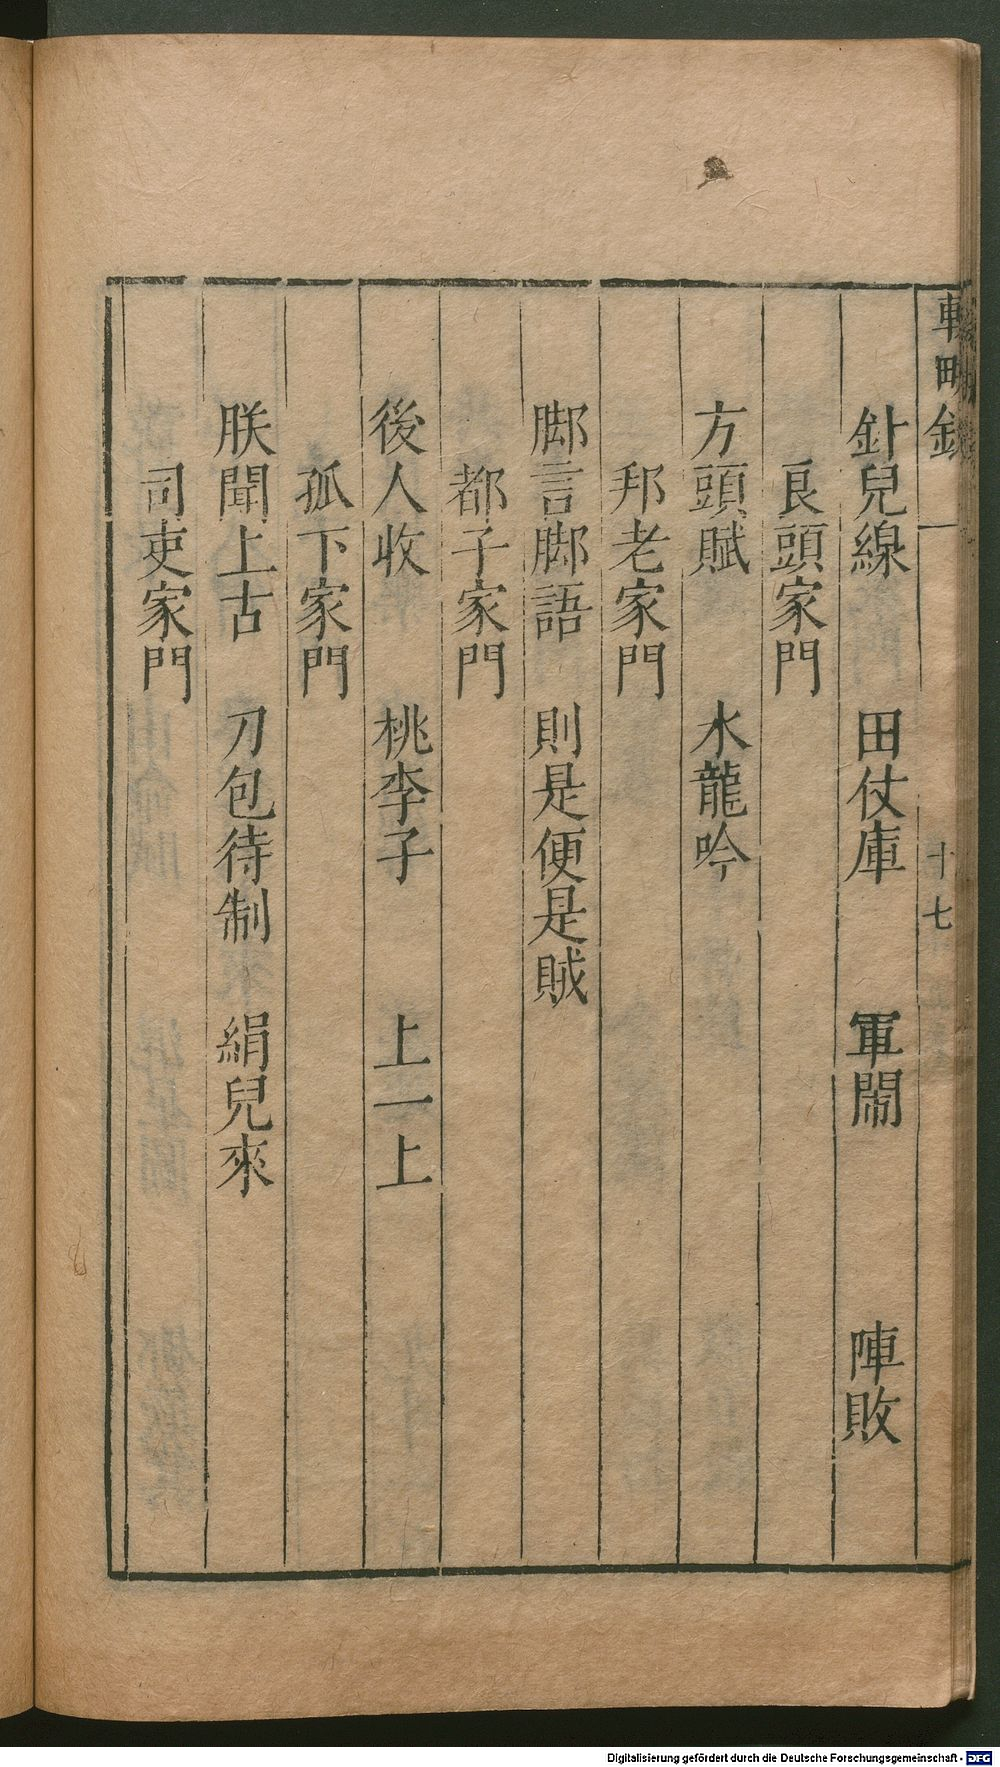 針兒線 田仗庫 軍閙 陣敗
良頭家門
方頭賦 水龍吟
邦老家門
脚言脚語 則是便是賊
都子家門
後人收 桃李子 上一上
孤下家門
朕聞上古 刀包待制 絹兒來
司吏家門
十七
Digitalisierung gefördert durch die Deutsche Forschungsgemeinschaft - DFG